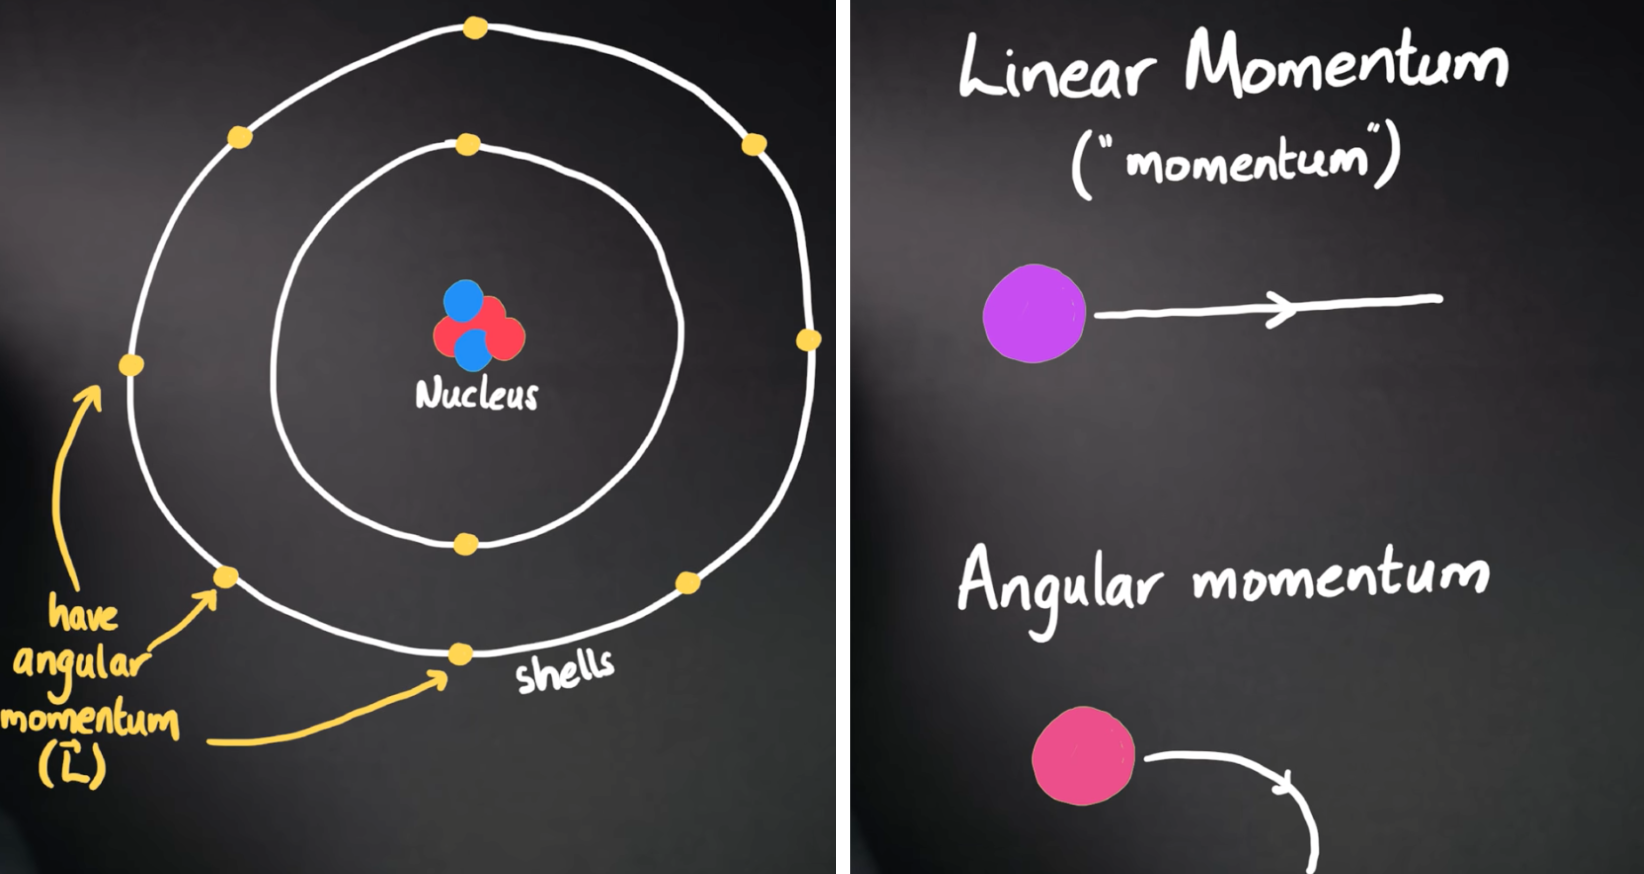 Nucleus
shells
have
angular
momentum
(L⃗)
Linear Momentum
("momentum")
Angular momentum